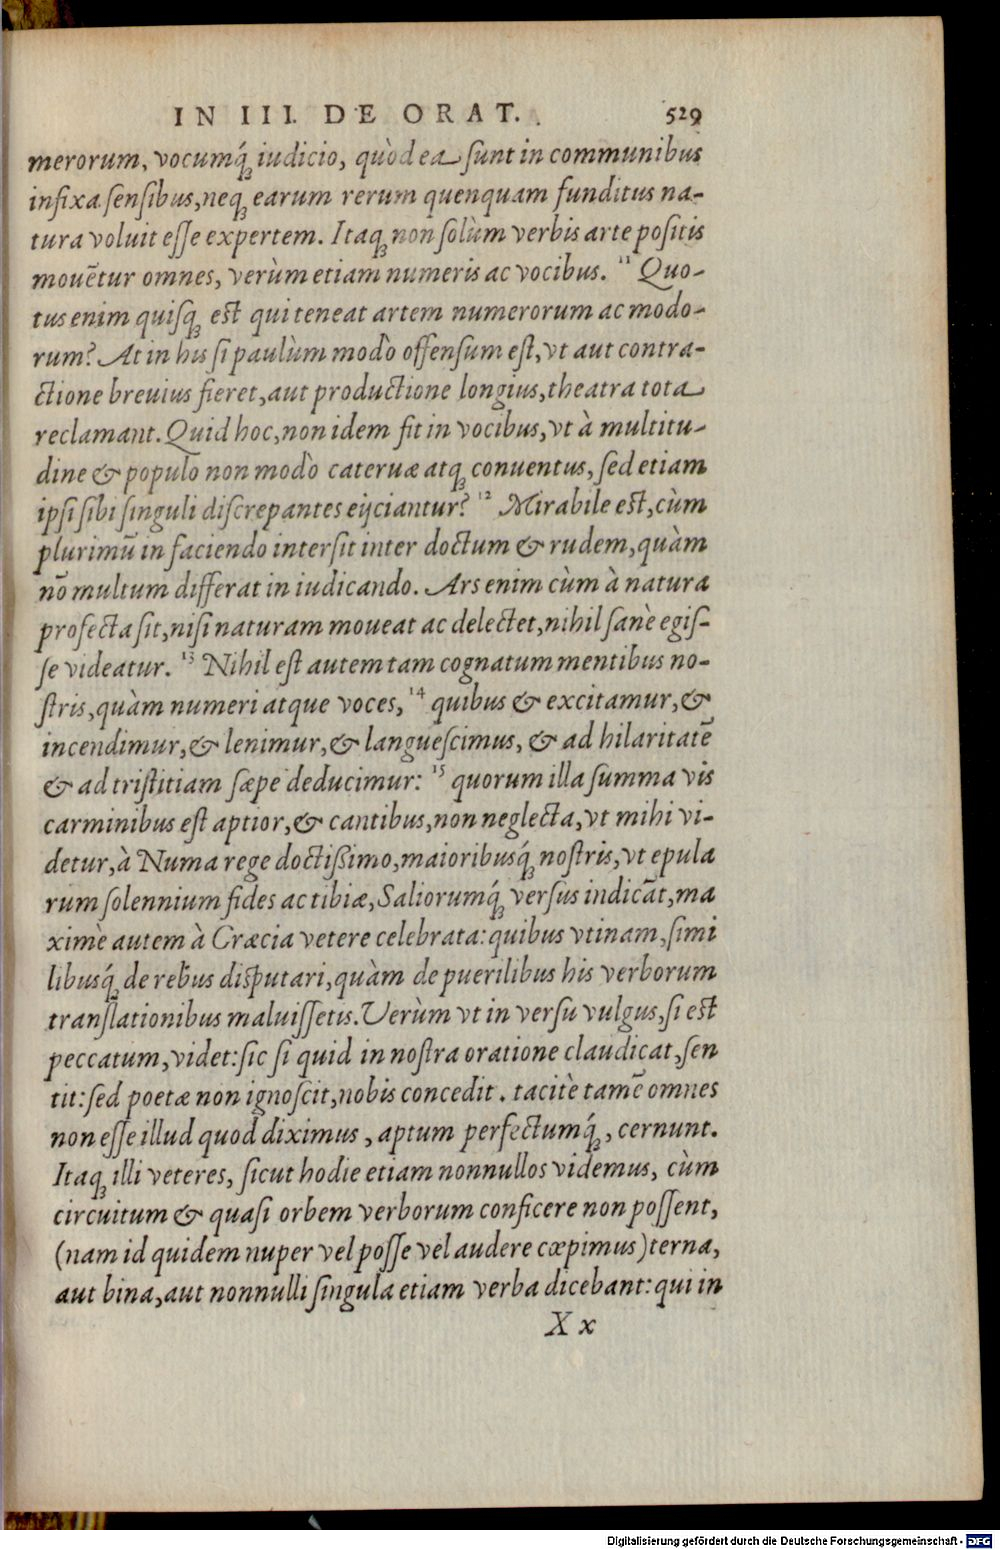 IN III. DE ORAT. 529
merorum, vocumq́ꝫ iudicio, quòd ea sunt in communibus
infixa sensibus, neqꝫ earum rerum quenquam funditus na-
tura voluit esse expertem. Itaqꝫ non solùm verbis arte positis
mouẽtur omnes, verùm etiam numeris ac vocibus. 11 Quo-
tus enim quisqꝫ est qui teneat artem numerorum ac modo-
rum? At in his si paulùm modò offensum est, vt aut contra-
ctione breuius fieret, aut productione longius, theatra tota
reclamant. Quid hoc, non idem fit in vocibus, vt à multitu-
dine & populo non modò cateruæ atqꝫ conuentus, sed etiam
ipsi sibi singuli discrepantes eijciantur? 12 Mirabile est, cùm
plurimũ in faciendo intersit inter doctum & rudem, quàm
nõ multum differat in iudicando. Ars enim cùm à natura
profecta sit, nisi naturam moueat ac delectet, nihil sanè egis-
se videatur. 13 Nihil est autem tam cognatum mentibus no-
stris, quàm numeri atque voces, 14 quibus & excitamur, &
incendimur, & lenimur, & languescimus, & ad hilaritatẽ
& ad tristitiam sæpe deducimur: 15 quorum illa summa vis
carminibus est aptior, & cantibus, non neglecta, vt mihi vi-
detur, à Numa rege doctißimo, maioribusq́ꝫ nostris, vt epula
rum solennium fides ac tibiæ, Saliorumq́ꝫ versus indicãt, ma
ximè autem à Græcia vetere celebrata: quibus vtinam, simi
libusq́ꝫ de rebus disputari, quàm de puerilibus his verborum
translationibus maluissetis. Verùm vt in versu vulgus, si est
peccatum, videt: sic si quid in nostra oratione claudicat, sen
tit: sed poetæ non ignoscit, nobis concedit. tacitè tamẽ omnes
non esse illud quod diximus, aptum perfectumq́ꝫ, cernunt.
Itaqꝫ illi veteres, sicut hodie etiam nonnullos videmus, cùm
circuitum & quasi orbem verborum conficere non possent,
(nam id quidem nuper vel posse vel audere cœpimus) terna,
aut bina, aut nonnulli singula etiam verba dicebant: qui in
X x
Digitalisierung gefördert durch die Deutsche Forschungsgemeinschaft - DFG